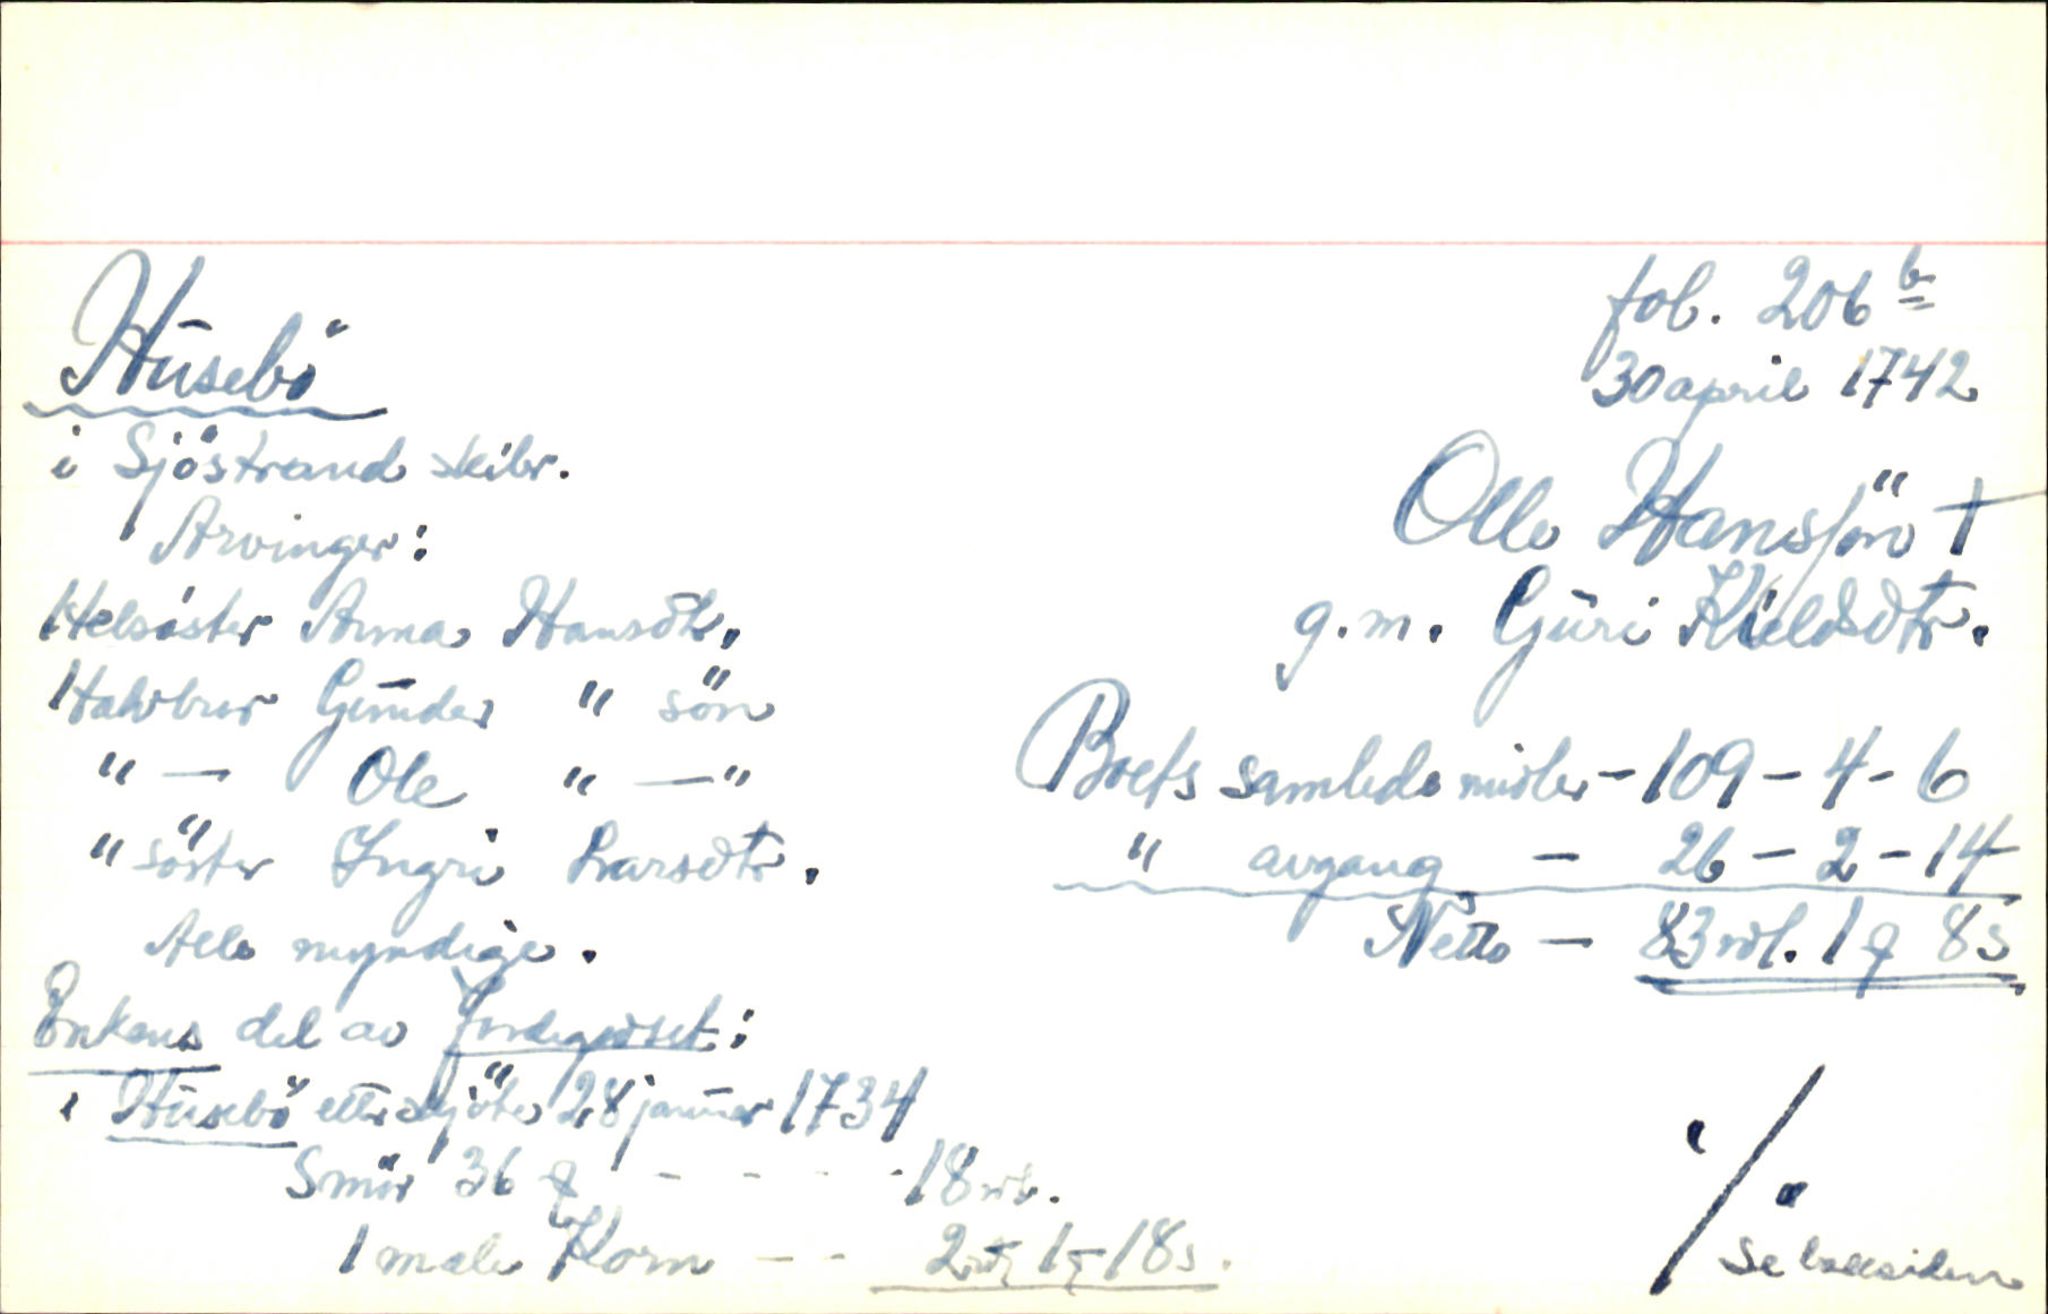 Húsebö
i Sjöstrand skibr.
Arvinger:
Helsöster Anna Hansdtr.
Halvbror Gunder " sön
" — Ole " — "
" söster Ingri Larsdtr.
Alle myndige.
Enkens del av jordegodset:
i Húsebö etter skjöte 28 januar 1734
Smör 36 ꝗ - - - - 18 rdl.
1 mæle Korn - - 2 rdl 1 ꝗ 18 s.
fol. 206 b
30 april 1742
Olle Hanssön †
g.m. Gúri Kieldsdtr.
Boets samlede midler - 109 - 4 - 6
" avgang - 26 - 2 - 14
Netto - 83 rdl. 1 ꝗ 8 s
./.
Se baksiden